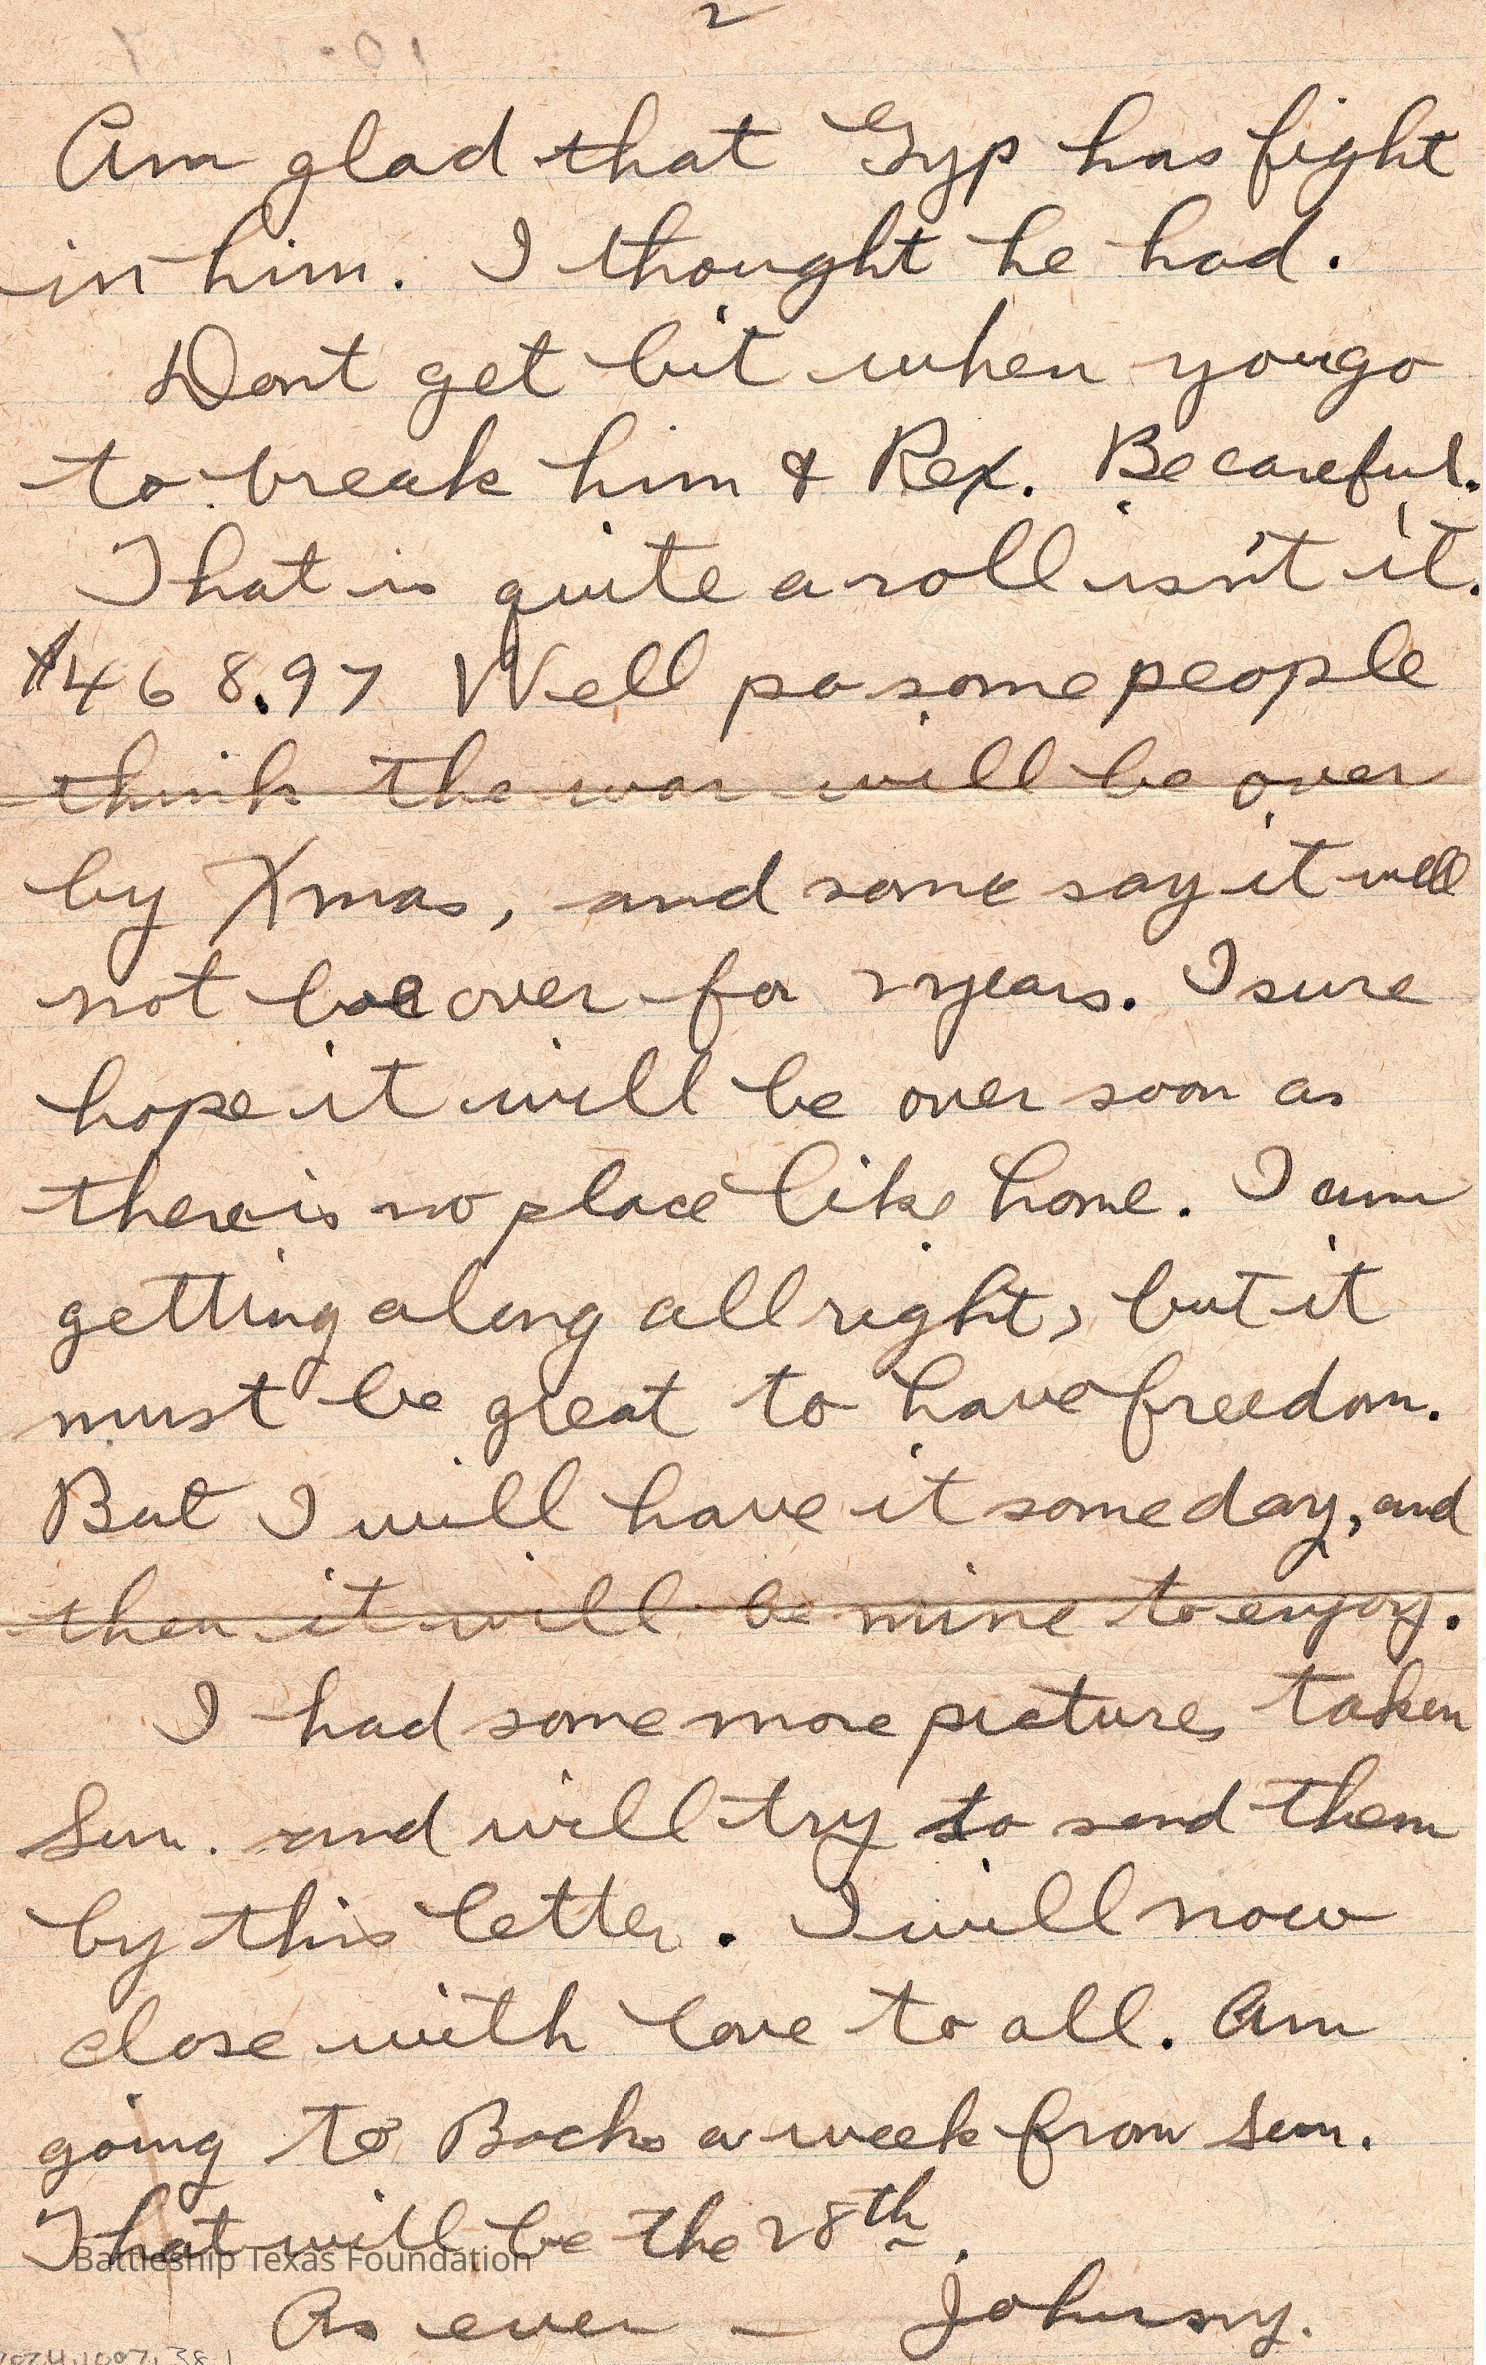 2
Am glad that Gyp has fight
in him. I thought he had.
Dont get bit when you go
to break him & Rex. Be careful.
That is quite a roll isn't it.
$468.97 Well pa some people
think the war will be over
by Xmas, and some say it will
not be over for 2 years. I sure
hope it will be over soon as
there is no place like home. I am
getting along all right, but it
must be great to have freedom.
But I will have it some day, and
then it will be mine to enjoy.
I had some more pictures taken
Sun. and will try to send them
by this letter. I will now
close with love to all. Am
going to Bachs a week from Sun.
That will be the 28th.
Battleship Texas Foundation
As ever — Johnny.
2024.1007.38.1